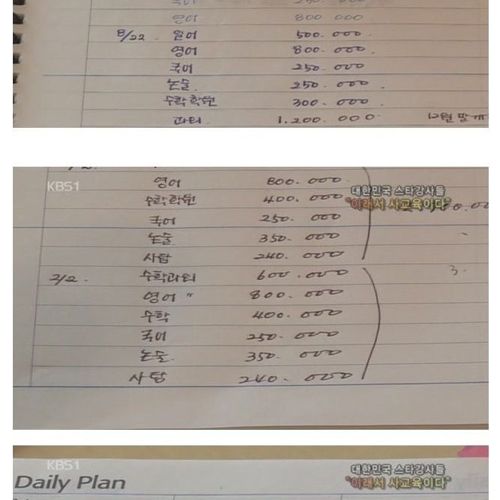 국어 250 000
영어 800 000
8/22 일어 500. 000
영어 800. 000.
국어 250. 000
논술. 250. 000.
수학학원 300. 000.
과외 1. 200. 000 12월 말까지
KBS1
영어 800. 000.
대한민국 스타강사들
수학학원 400. 000
"이래서 사교육이다"
국어 250. 000
논술 350. 000
사탐 240. 000
2/2. 수학과외 600. 000 3.
영어 " 800. 000
수학 400. 000
국어 250. 000
논술. 350. 000
사탐 240. 000
KBS1
대한민국 스타강사들
Daily Plan
"이래서 사교육이다"